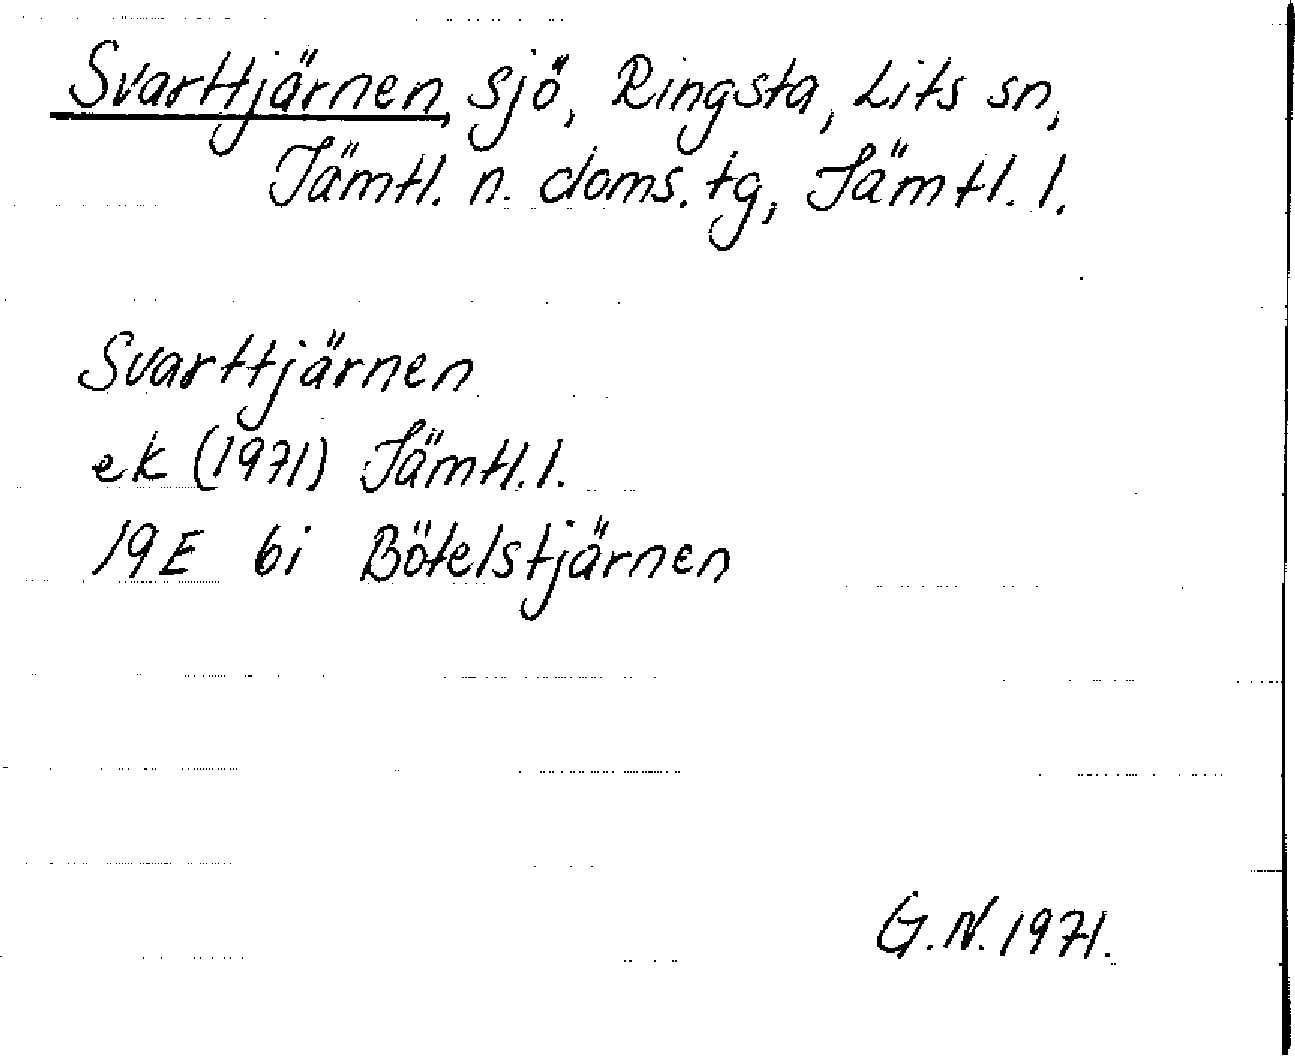 Svarttjärnen, sjö, Ringsta, Lits sn,
Jämtl. n. doms. tg, Jämtl. l.
Svarttjärnen
ek (1971) Jämtl. l.
19E 6i Bötelstjärnen
G.N. 1971.